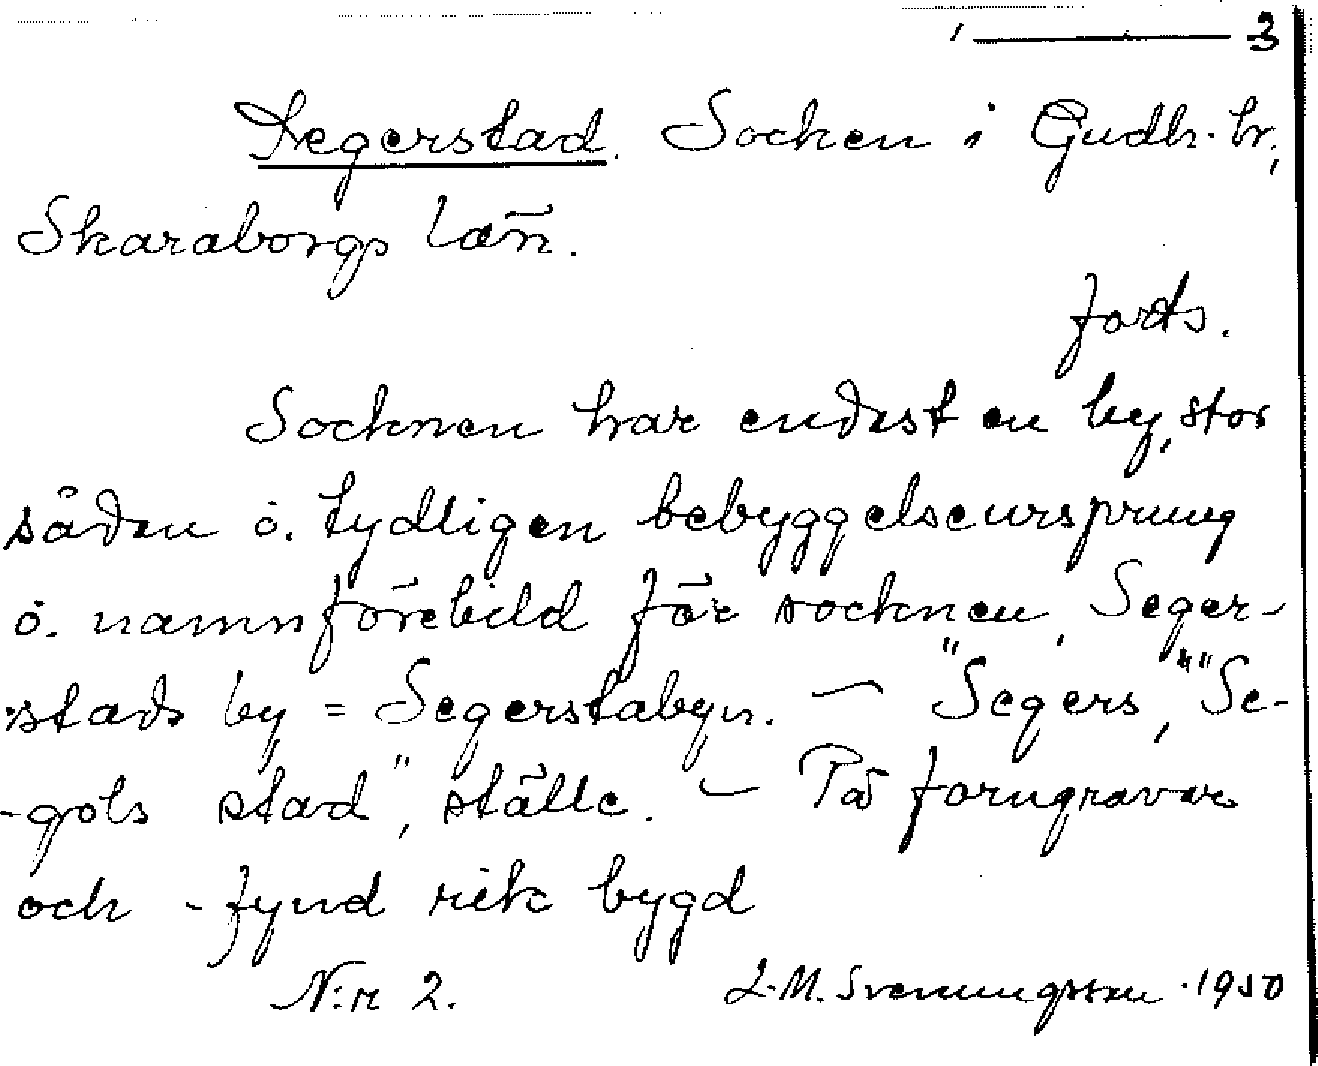 1 ——— 3
Segerstad. Socken i Gudh. hr,
Skaraborgs län.
forts.
Socknen har endast en by, stor
sådan o. tydligen bebyggelseursprung
o. namnförebild för socknen, Seger-
stads by = Segerstabyn. — "Segers", "Se-
-gols stad", ställe. — På forngravar
och -fynd rik bygd
N:r 2. L.M. Svenungsson. 1950